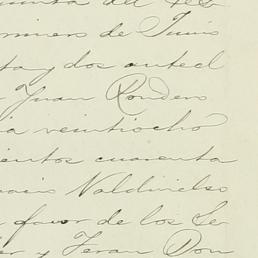 del
primero de Junio
ta y dos anteel
Juan Rondero
ia veintiocho
cientos cuarenta
nacio Valdivielso
a favor de los Se
er y Feran Don